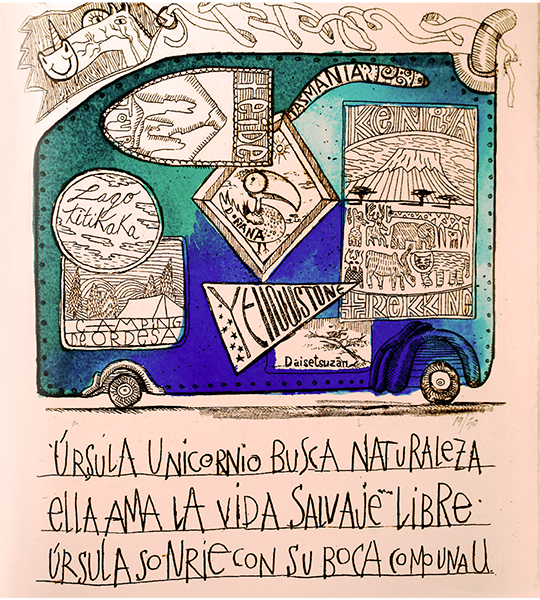 KENIA
DOÑANA
Lago
titiKaKa
YEllOWSTONE
TREKKING
CAMPING
ORDESA
Daisetsuzan
ÚRSULA UNICORNIO BUSCA NATURALEZA
ELLA AMA LA VIDA SALVAJE LIBRE
ÚRSULA SONRIE CON SU BOCA COMO UNA U.